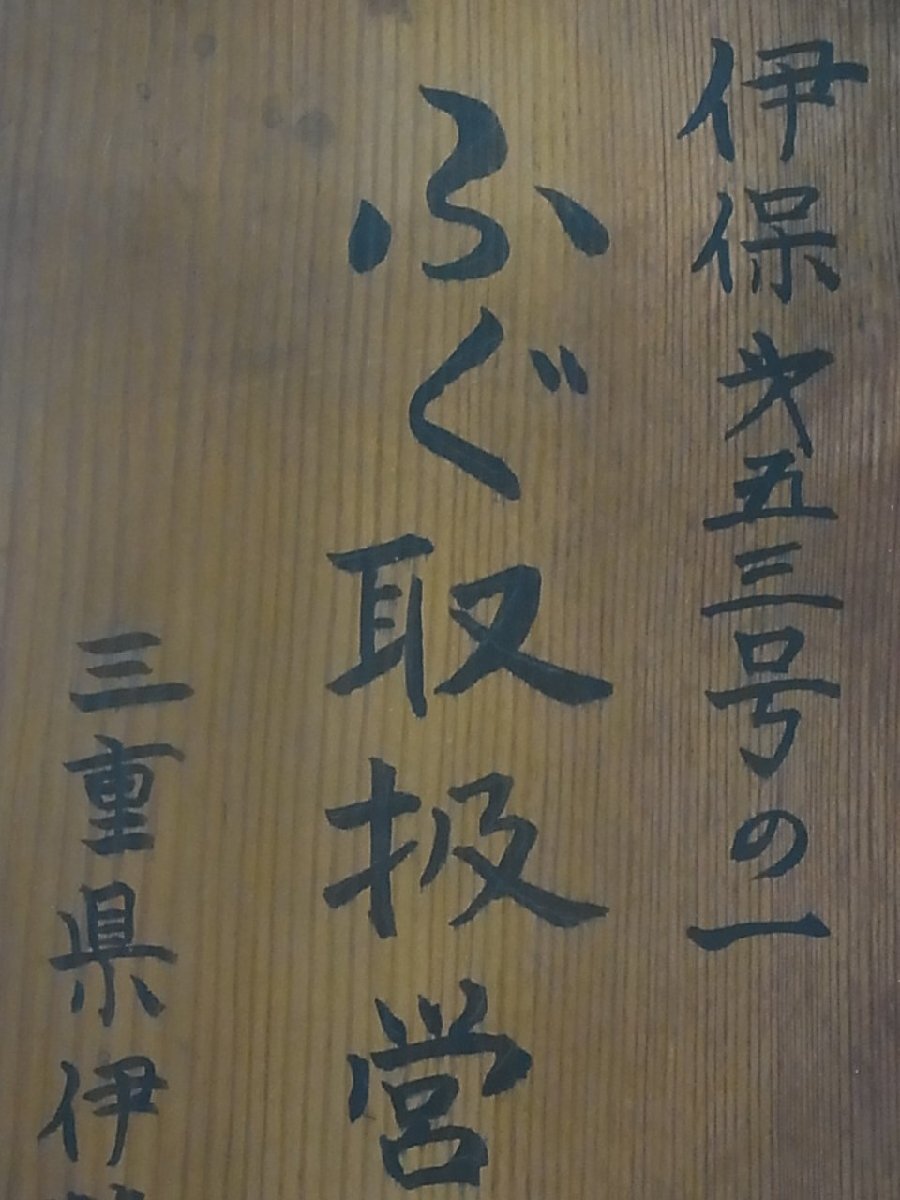 伊保㐧五三号の一
ふぐ取扱営
三重県伊